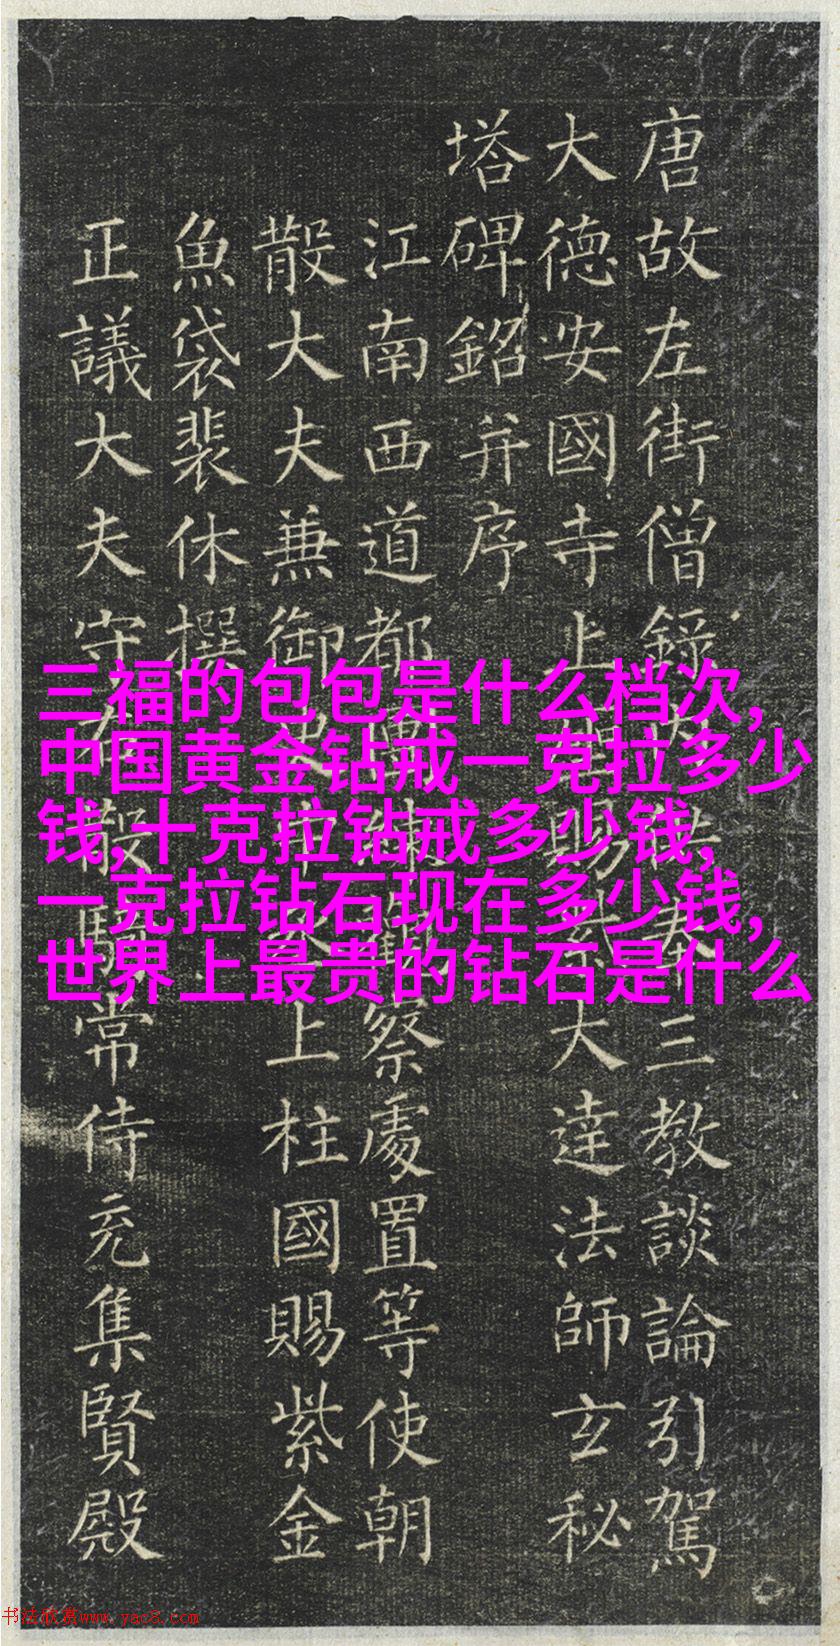 唐故左街僧錄奉三教談論引駕
大德安國寺上賜紫大達法師玄秘
塔碑銘并序
江南西道都練觀察處置等使朝
散大夫兼御史中丞上柱國賜紫金
魚袋裴休撰
正議大夫守右散騎常侍充集賢殿
三福的包包是什么档次,
中国黄金钻戒一克拉多少
钱,十克拉钻戒多少钱,
一克拉钻石现在多少钱,
世界上最贵的钻石是什么
书法欣赏www.yac8.com